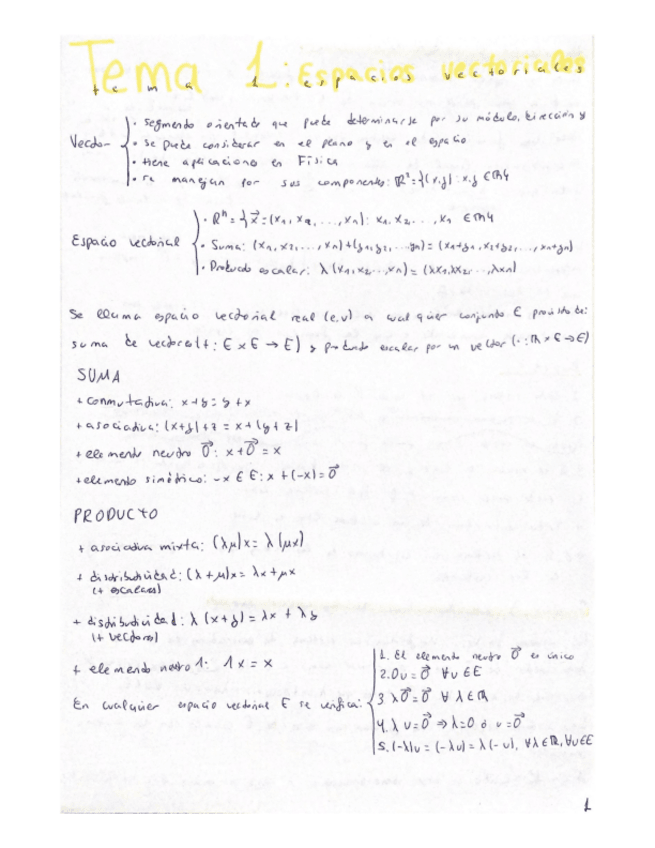 Tema 1: Espacios vectoriales
tema 1 espacios vectoriales
Vector
· Segmento orientado que puede determinarse por su módulo, dirección y
· Se puede considerar en el plano y en el espacio
· tiene aplicaciones en Física
· se manejan por sus componentes: ℝ²={(x,y): x,y ∈ℝ}
Espacio vectorial
· Rⁿ={x⃗=(x₁,x₂,...,xₙ): x₁,x₂,...,xₙ ∈ℝ}
· Suma: (x₁,x₂,...,xₙ)+(y₁,y₂,...yₙ)=(x₁+y₁,x₂+y₂,...,xₙ+yₙ)
· Producto escalar: λ(x₁,x₂...,xₙ)=(λx₁,λx₂...,λxₙ)
Se llama espacio vectorial real (e.v) a cualquier conjunto E provisto de:
suma de vectores(+: E×E→E) y producto escalar por un vector (·:ℝ×E→E)
SUMA
+ conmutativa: x+y=y+x
+ asociativa: (x+y)+z=x+(y+z)
+ elemento neutro 0⃗: x+0⃗=x
+ elemento simétrico: -x∈E: x+(-x)=0⃗
PRODUCTO
+ asociativa mixta: (λμ)x=λ(μx)
+ distributividad: (λ+μ)x=λx+μx
(+ escalares)
+ distributividad: λ(x+y)=λx+λy
(+ vectores)
+ elemento neutro 1· 1x=x
En cualquier espacio vectorial E se verifica:
1. El elemento neutro 0⃗ es único
2. 0v=0⃗ ∀v∈E
3 λ0⃗=0⃗ ∀λ∈ℝ
4. λv=0⃗ ⇒λ=0 ó v=0⃗
5. (-λ)v=(-λv)=λ(-v), ∀λ∈ℝ,∀v∈E
1